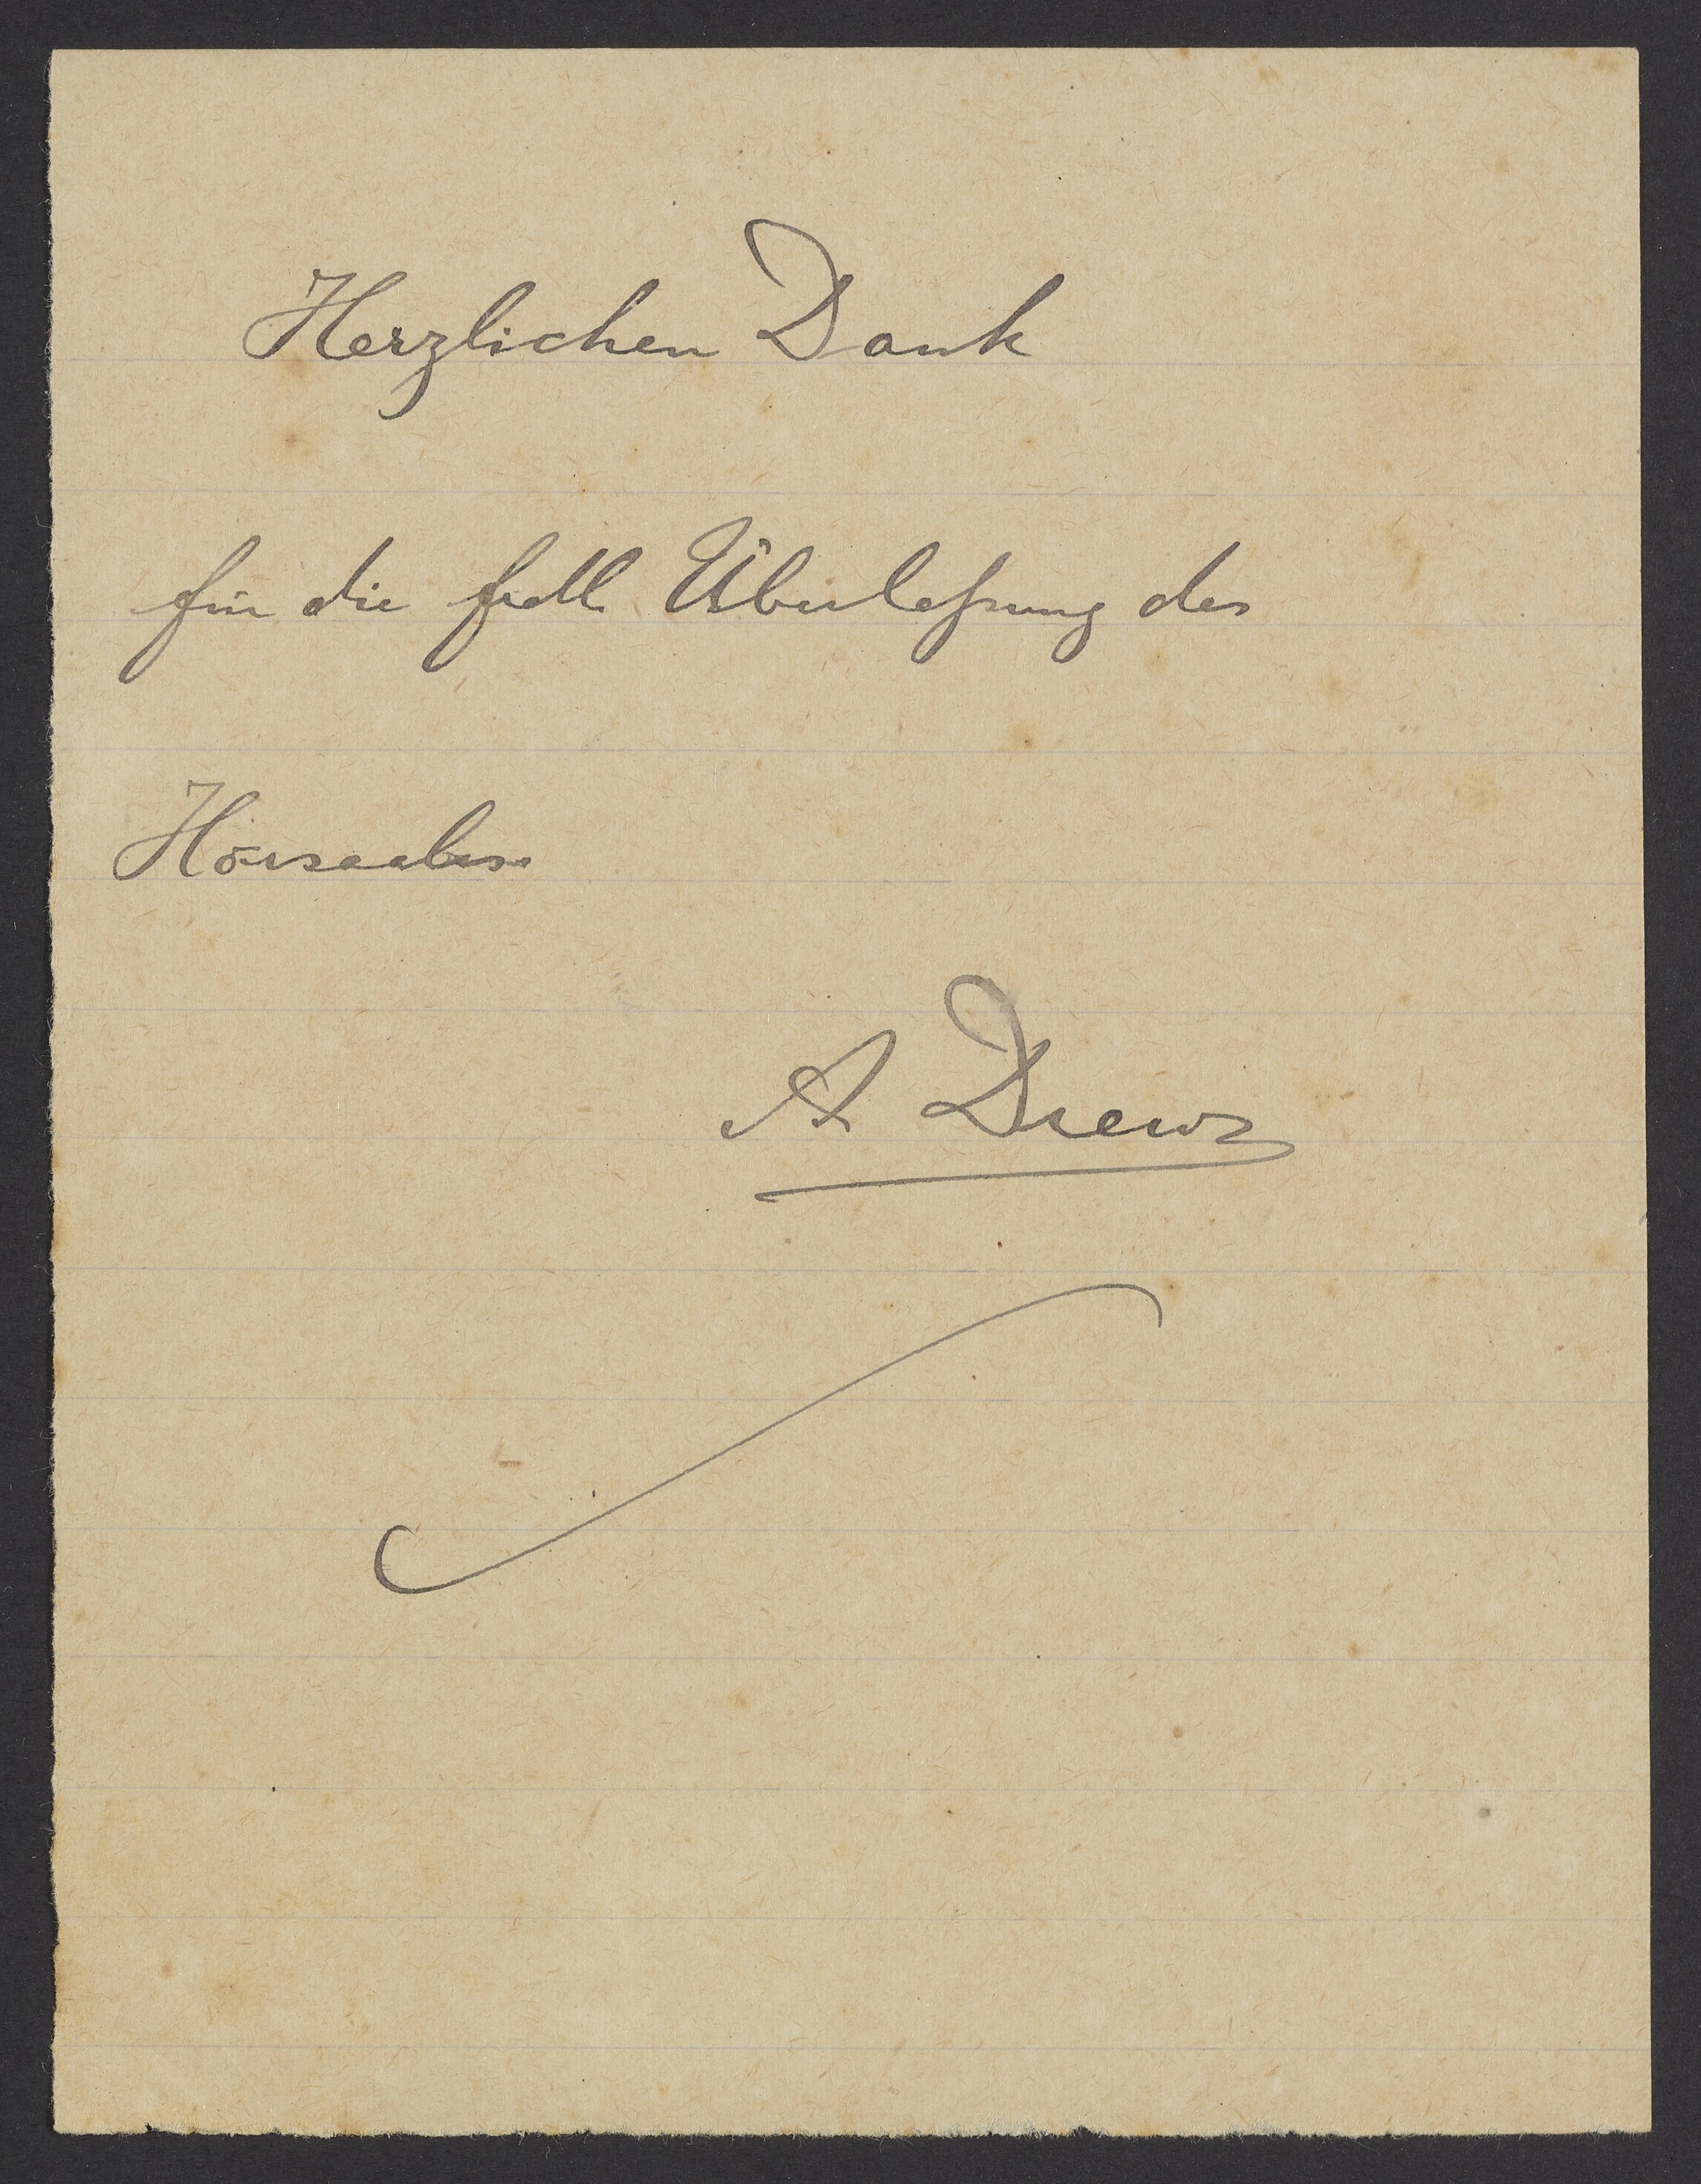 Herzlichen Dank
für die frdl. Überlassung des
Hörsaales.
A Drews